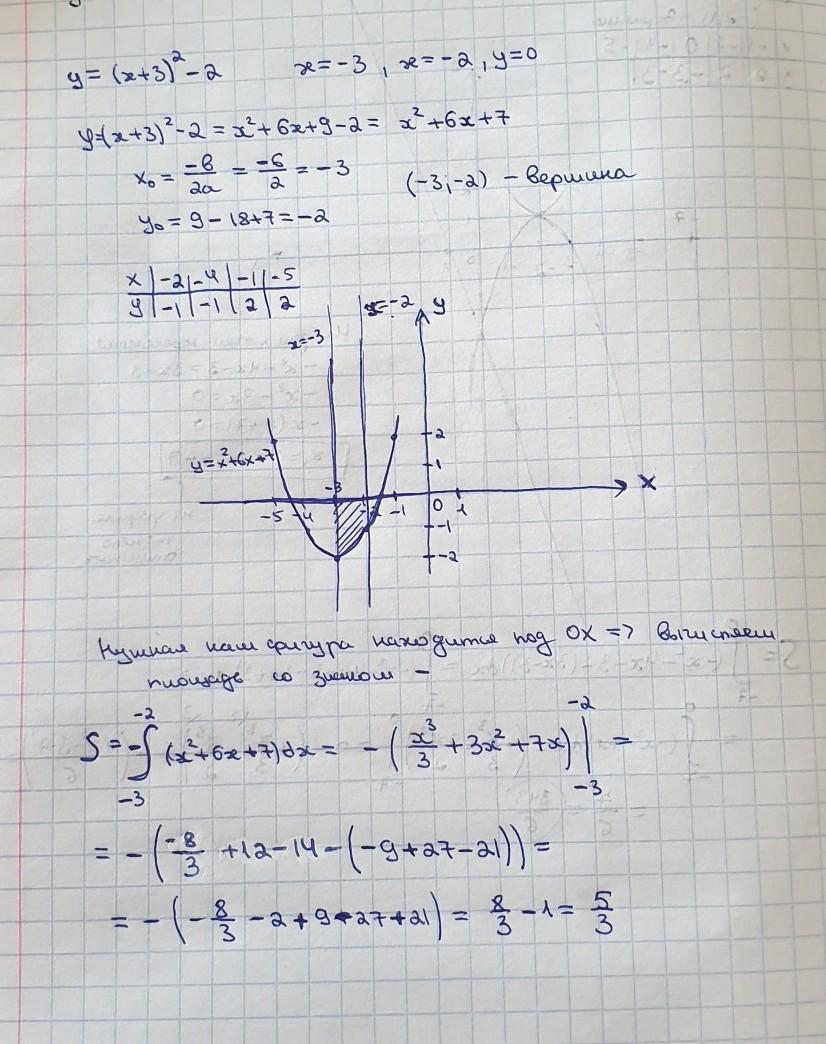 y = (x+3)² - 2   x = -3, x = -2, y = 0
y=(x+3)² - 2 = x² + 6x + 9 - 2 = x² + 6x + 7
x₀ = -в/2a = -6/2 = -3   (-3; -2) - вершина
y₀ = 9 - 18 + 7 = -2
x | -2 | -4 | -1 | -5
y | -1 | -1 | 2 | 2
x=-2 y
x=-3
2
y=x²+6x+7 1
-3 x
-5 -4 -2 -1 0 1
-1
-2
Нужная нам фигура находится под OX => вычисляем
площадь со знаком -
S = -∫₋₃⁻² (x²+6x+7)dx = -(x³/3 + 3x² + 7x)|₋₃⁻² =
= -(-8/3 + 12 - 14 - (-9 + 27 - 21)) =
= -(-8/3 - 2 + 9 - 27 + 21) = 8/3 - 1 = 5/3